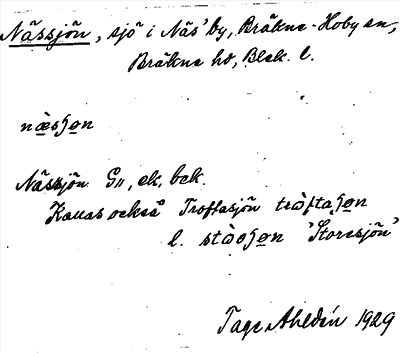 Nässjön, sjö i Näs' by, Bräkne-Hoby sn,
Bräkne hd, Blek. l.
næsʃon
Nässjön G11, ek, bek.
Kallas också Troftasjön tròftaʃon
l. stòʃon 'Storesjön'
Tage Ahldén 1929